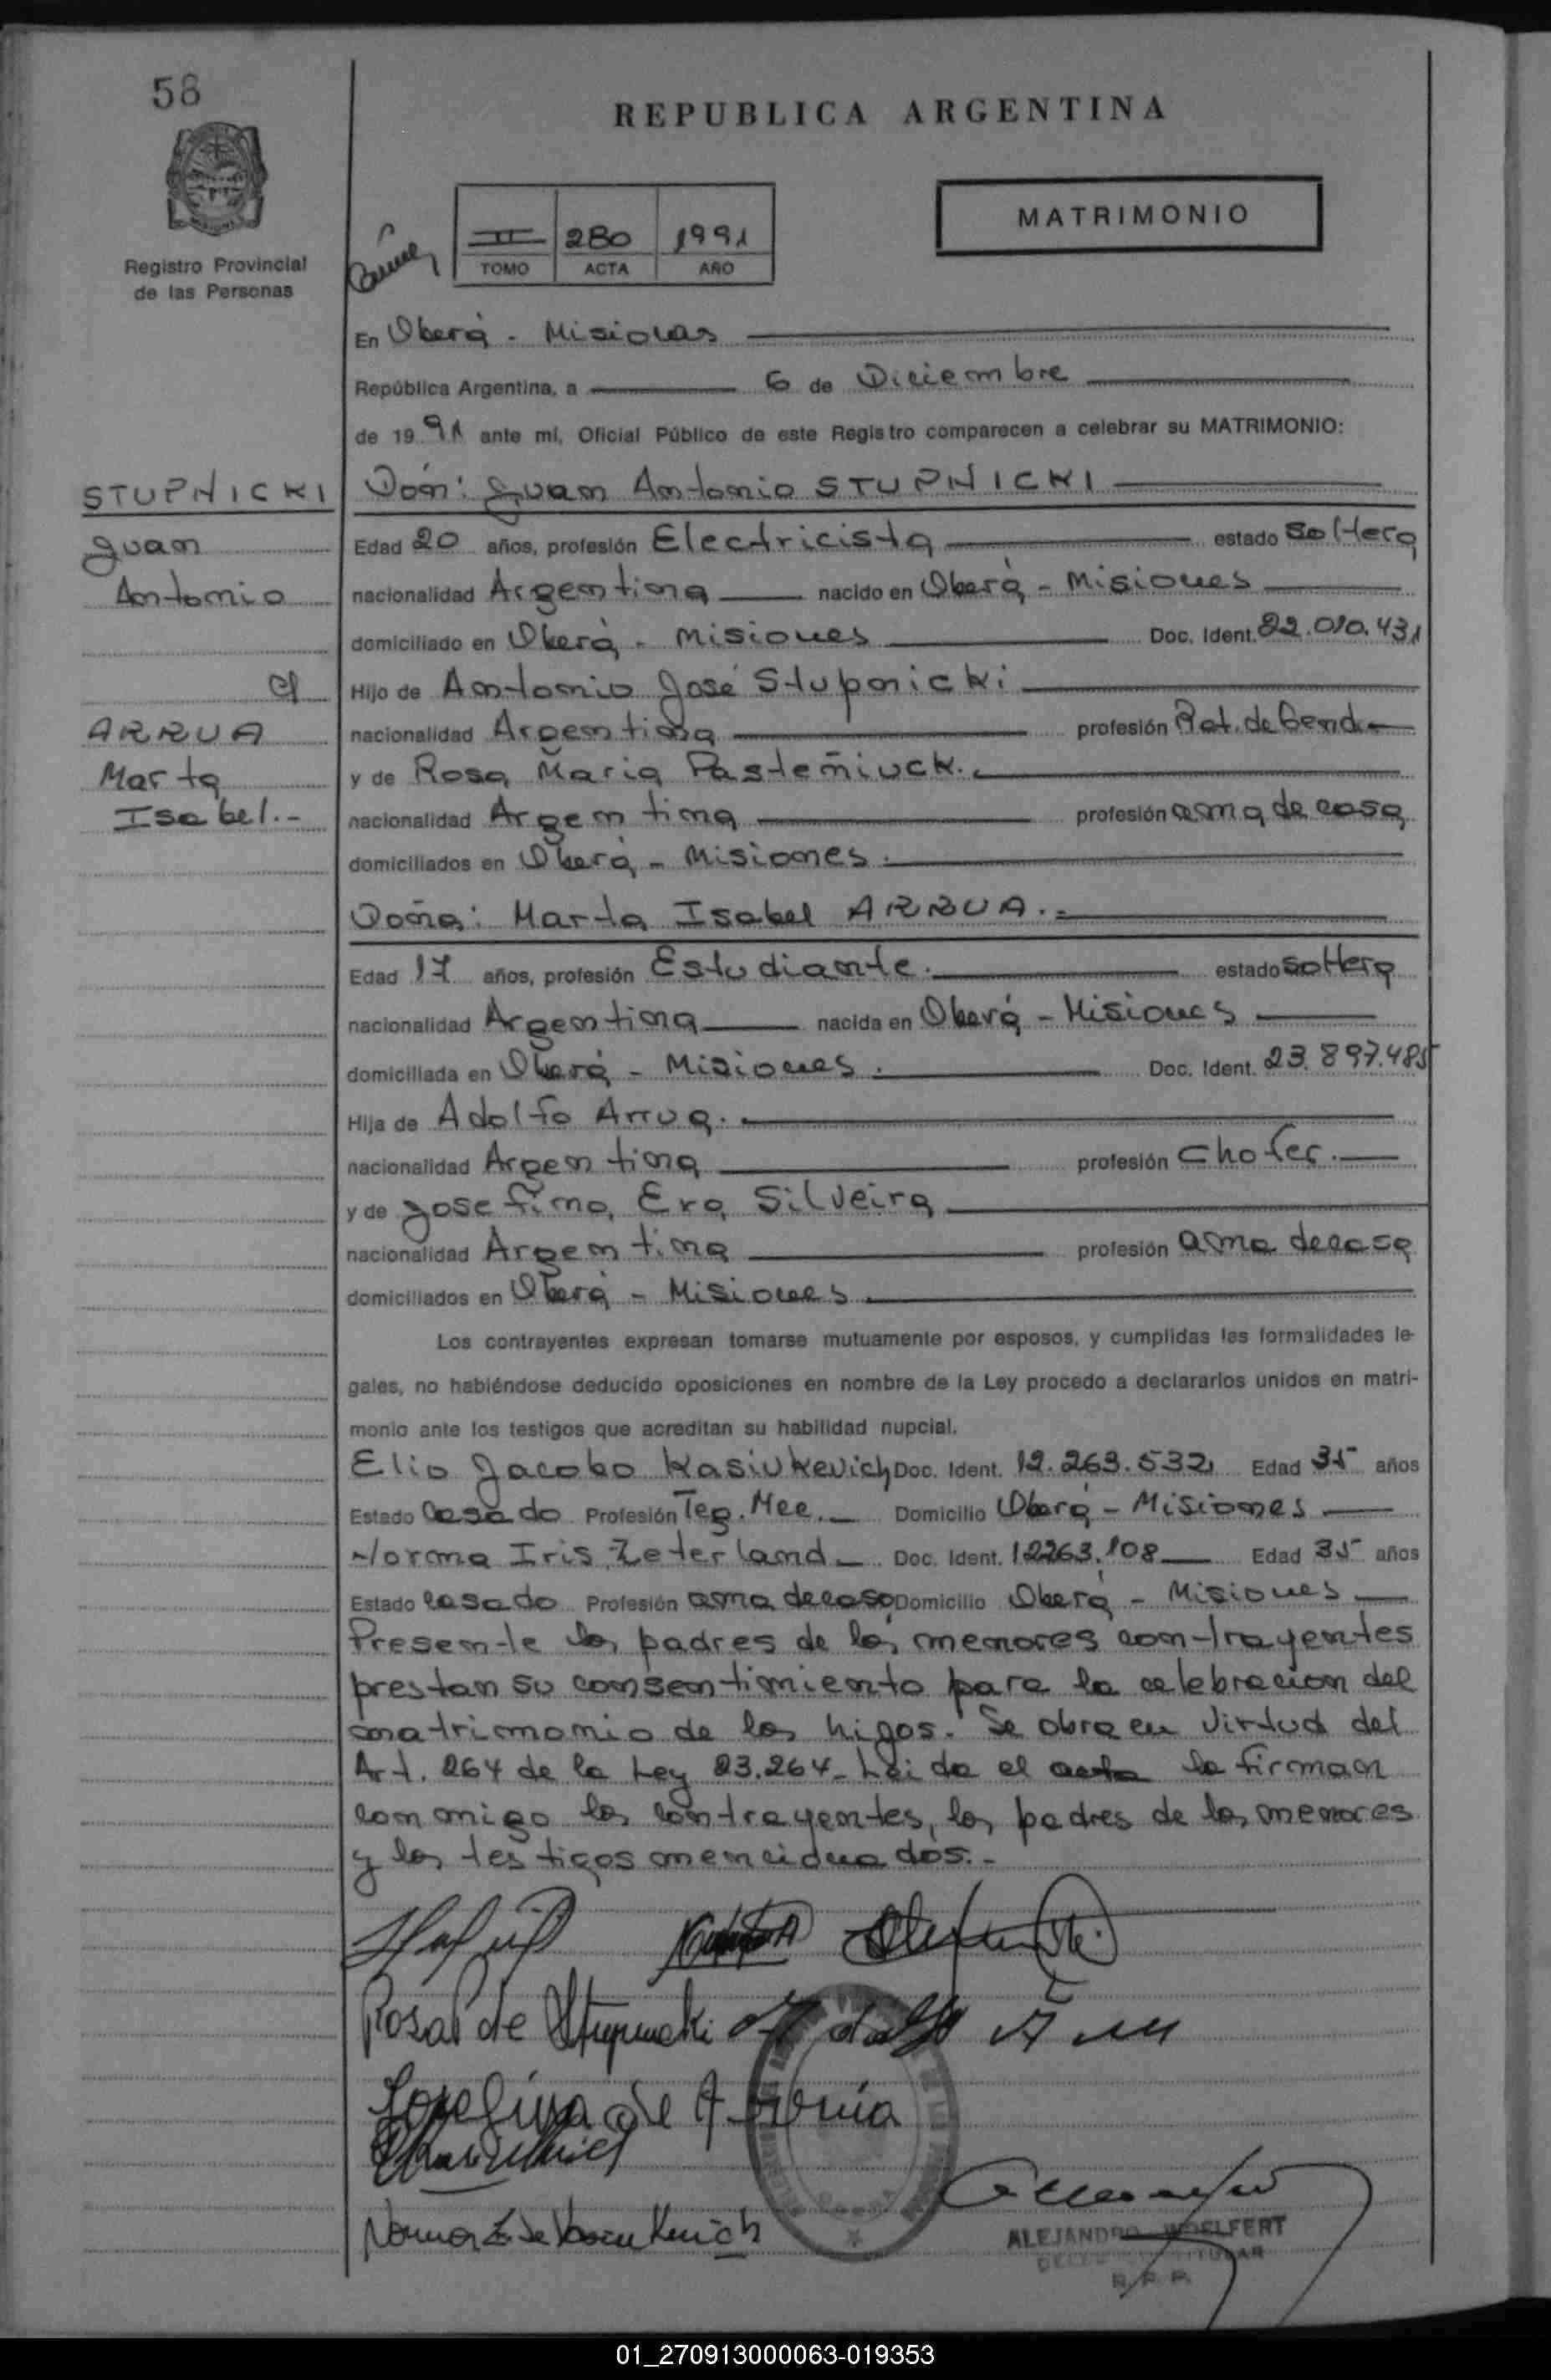 58
REPUBLICA ARGENTINA
MATRIMONIO
Registro Provincial
de las Personas
II 280 1991
TOMO ACTA AÑO
En Oberá - Misiones
República Argentina, a 6 de Diciembre
de 1991 ante mí, Oficial Público de este Registro comparecen a celebrar su MATRIMONIO:
STUPNICKI
Juan
Antonio
c/
ARRUA
Marta
Isabel.-
Don: Juan Antonio STUPNICKI
Edad 20 años, profesión Electricista estado Soltero
nacionalidad Argentina nacido en Oberá - Misiones
domiciliado en Oberá - Misiones Doc. Ident. 22.010.431
Hijo de Antonio José Stupnicki
nacionalidad Argentina profesión Ret. de Gend.
y de Rosa Maria Pasteñiuck.
nacionalidad Argentina profesión ama de casa
domiciliados en Oberá - Misiones.
Doña: Marta Isabel ARRUA.-
Edad 17 años, profesión Estudiante. estado Soltera
nacionalidad Argentina nacida en Oberá - Misiones
domiciliada en Oberá - Misiones. Doc. Ident. 23.897.485
Hija de Adolfo Arrua.
nacionalidad Argentina profesión Chofer.
y de Josefina Eva Silveira
nacionalidad Argentina profesión ama de casa
domiciliados en Oberá - Misiones.
Los contrayentes expresan tomarse mutuamente por esposos, y cumplidas las formalidades le-
gales, no habiéndose deducido oposiciones en nombre de la Ley procedo a declararlos unidos en matri-
monio ante los testigos que acreditan su habilidad nupcial.
Elio Jacobo Kasiukevich Doc. Ident. 12.263.532 Edad 35 años
Estado Casado Profesión Tec. Mec. Domicilio Oberá - Misiones
Norma Iris Zeterland Doc. Ident. 12263.108 Edad 35 años
Estado casado Profesión ama de casa Domicilio Oberá - Misiones
Presente los padres de los menores contrayentes
prestan su consentimiento para la celebracion del
matrimonio de los higos. Se obra en virtud del
Art. 264 de la Ley 23.264- Leida el acta la firman
conmigo los contrayentes, los padres de los menores
y los testigos mencionados.-
Rosa P de Stupnicki
Josefina de
Norma Z de
ALEJANDRO WOELFERT
R. P. P.
01_270913000063-019353